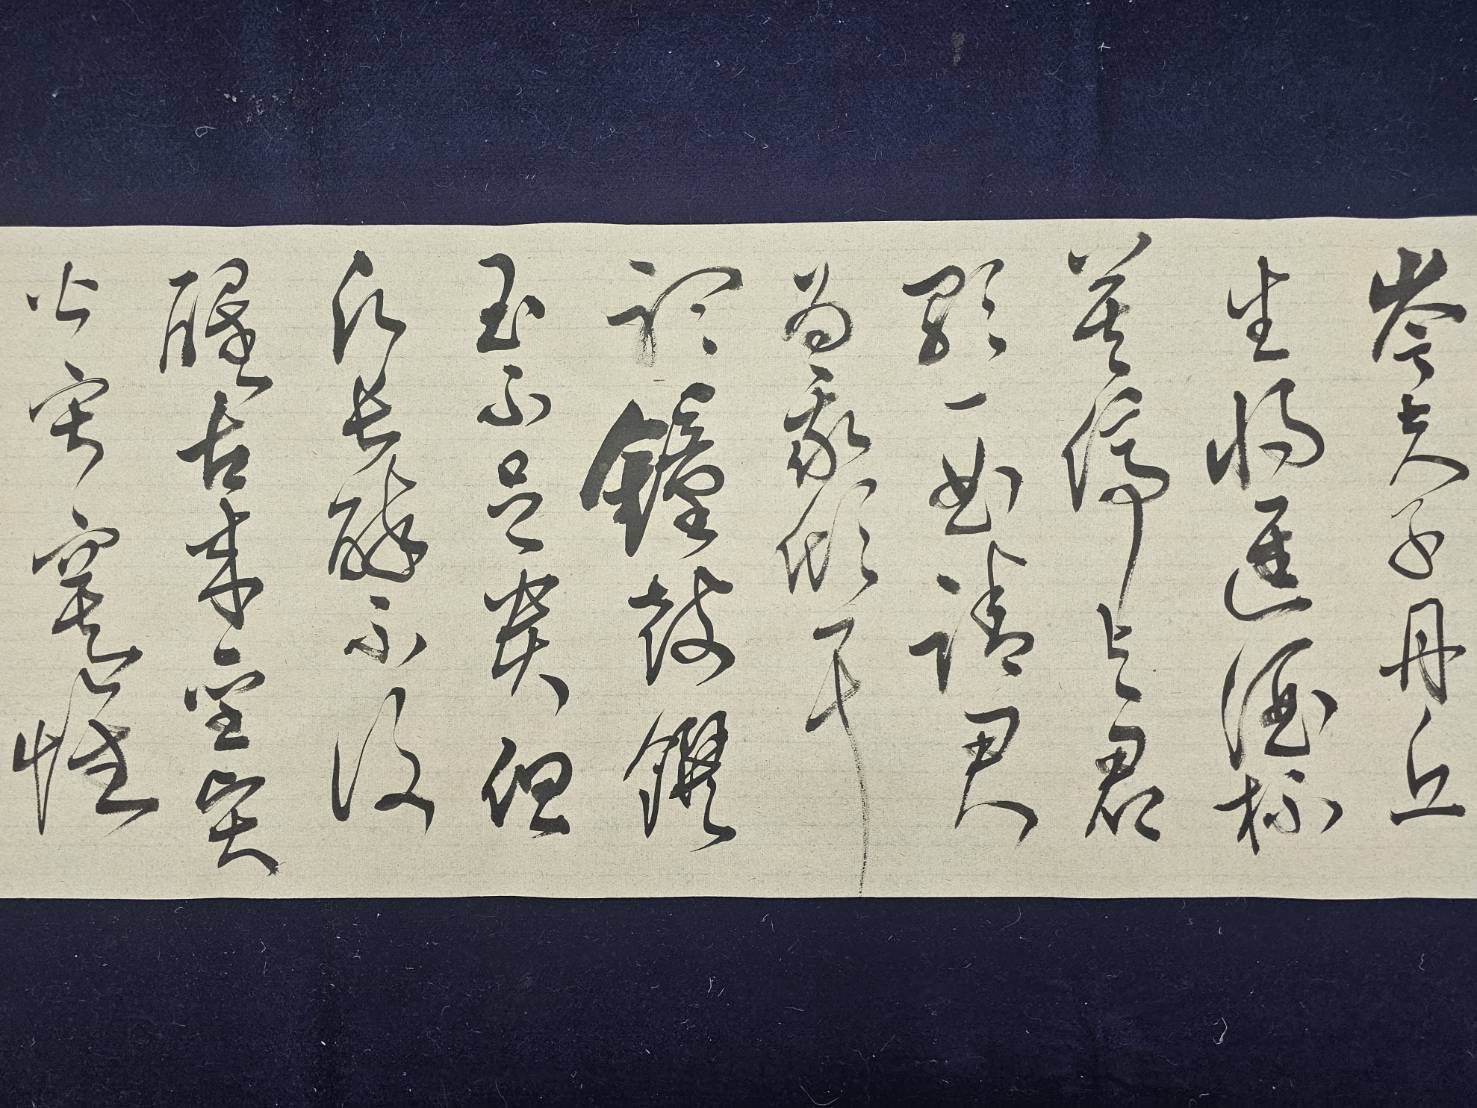 岑夫子丹丘
生將進酒杯
莫停與君
歌一曲請君
為我傾耳
聽鐘鼓饌
玉不足貴但
願長醉不復
醒古來聖賢
皆寂寞惟